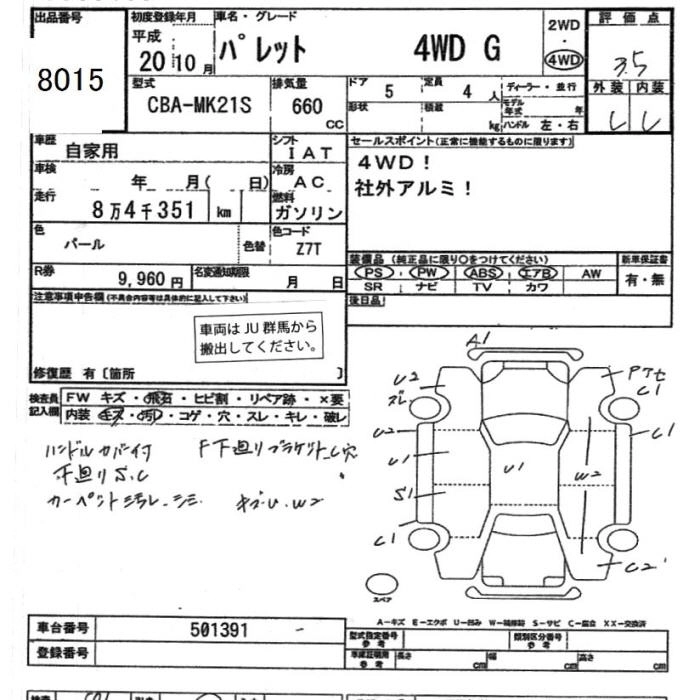 出品番号 初度登録年月 車名・グレード 評価点
8015 平成 20年10月 パレット 4WD G 2WD・4WD 3.5
型式 排気量 ドア 5 定員 4人 ディーラー・並行 外装 内装
CBA-MK21S 660 CC 形状 積載 kg モデル年式 年 ハンドル 左・右
車歴 自家用 シフト IAT セールスポイント(正常に機能するものに限ります)
車検 年 月( 日) 冷房 AC 4WD!
走行 8万4千351 km 燃料 ガソリン 社外アルミ!
色 パール 色替 色コード Z7T
装備品(純正品に限り○をつけてください) 新車保証書
R券 9,960円 名変通知期限 月 日 PS PW ABS エアB AW 有・無
SR ナビ TV カワ
注意事項申告欄(不具合内容等は具体的に記入して下さい) 後日品
車両はJU群馬から
搬出してください。
修復歴 有〔箇所 〕
検査員記入欄 FW キズ・飛石・ヒビ割・リペア跡・×要
内装 キズ・汚レ・コゲ・穴・スレ・キレ・破レ
ハンドルカバー付 F下廻りブラケットC穴
下廻りS.C
カーペット汚レ シミ キズU.W2
A1
U2
ズレ
U2
U1
S1
C1
U1
W2
C1
C1
C2
スペア
A-キズ E-エクボ U-凹み W-補修跡 S-サビ C-腐食 XX-交換済
車台番号 501391 型式指定番号 参考 類別区分番号 参考
登録番号 車庫証明用 参考 長さ cm 幅 cm 高さ cm